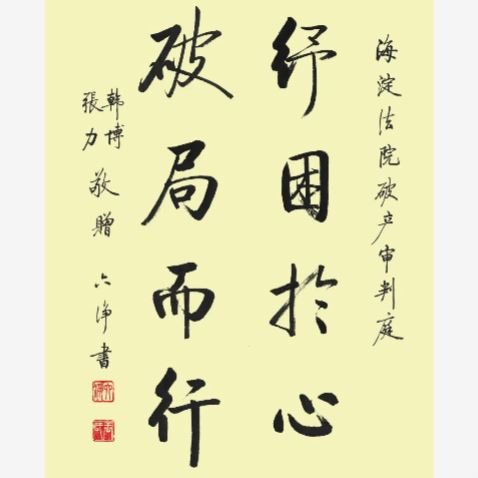 海淀法院破产审判庭
纾困於心
破局而行
韩博
張力
敬贈 六净書